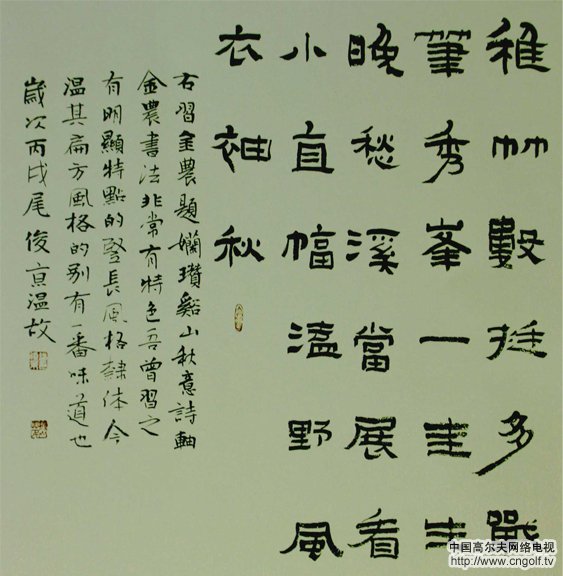 稚竹數挺多
筆秀峯一圭生
晚愁溪當展看
小直幅溘野風
衣袖秋
右習金農題孏瓚谿山秋意詩軸
金農書法非常有特色吾曾習之
有明顯特點的豎長風格隸体今
温其扁方風格的别有一番味道也
歲次丙戌尾俊京温故
中国高尔夫网络电视
www.cngolf.tv